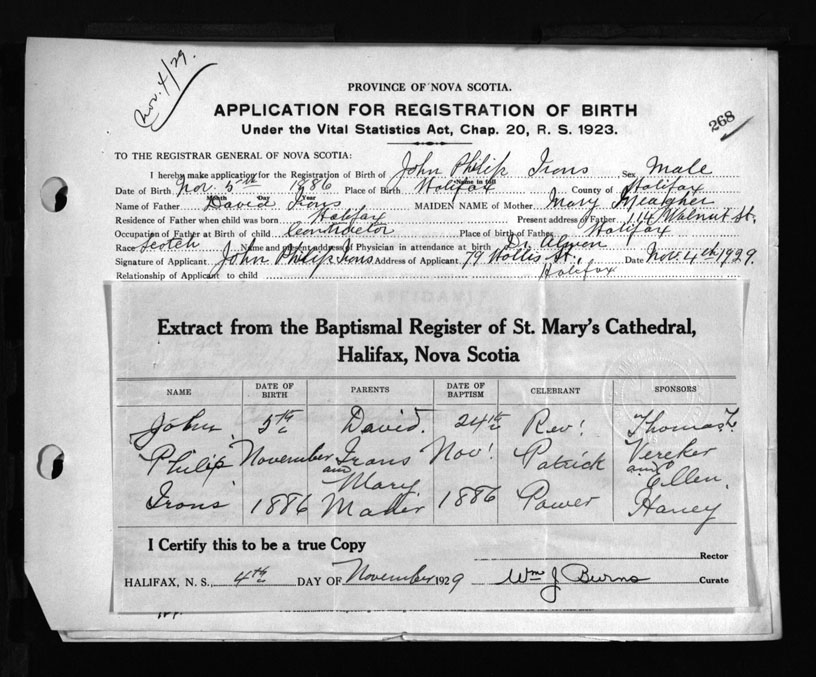 Nov. 4/29.
PROVINCE OF NOVA SCOTIA.
APPLICATION FOR REGISTRATION OF BIRTH
Under the Vital Statistics Act, Chap. 20, R. S. 1923.
268
TO THE REGISTRAR GENERAL OF NOVA SCOTIA:
I hereby make application for the Registration of Birth of John Philip Irons Sex Male
Name in full
Date of Birth Nov. 5th 1886 Place of Birth Halifax County of Halifax
Month Day Year
Name of Father David Irons MAIDEN NAME of Mother Mary Meagher
Residence of Father when child was born Halifax Present address of Father 114 Walnut St.
Occupation of Father at Birth of child Contractor Place of birth of Father Halifax
Race Scotch Name and present address of Physician in attendance at birth Dr.
Signature of Applicant John Philip Irons Address of Applicant 79 Hollis St., Date Nov. 4th 1929.
Relationship of Applicant to child Halifax
Extract from the Baptismal Register of St. Mary's Cathedral,
Halifax, Nova Scotia
NAME DATE OF BIRTH PARENTS DATE OF BAPTISM CELEBRANT SPONSORS
John 5th David 24th Rev! Thomas
Philip November Irons Nov! Patrick Vereker
and and
Mary Ellen
Irons 1886 1886 Power
I Certify this to be a true Copy
Rector
HALIFAX, N. S., 4th DAY OF November 1929 Wm J Burns Curate